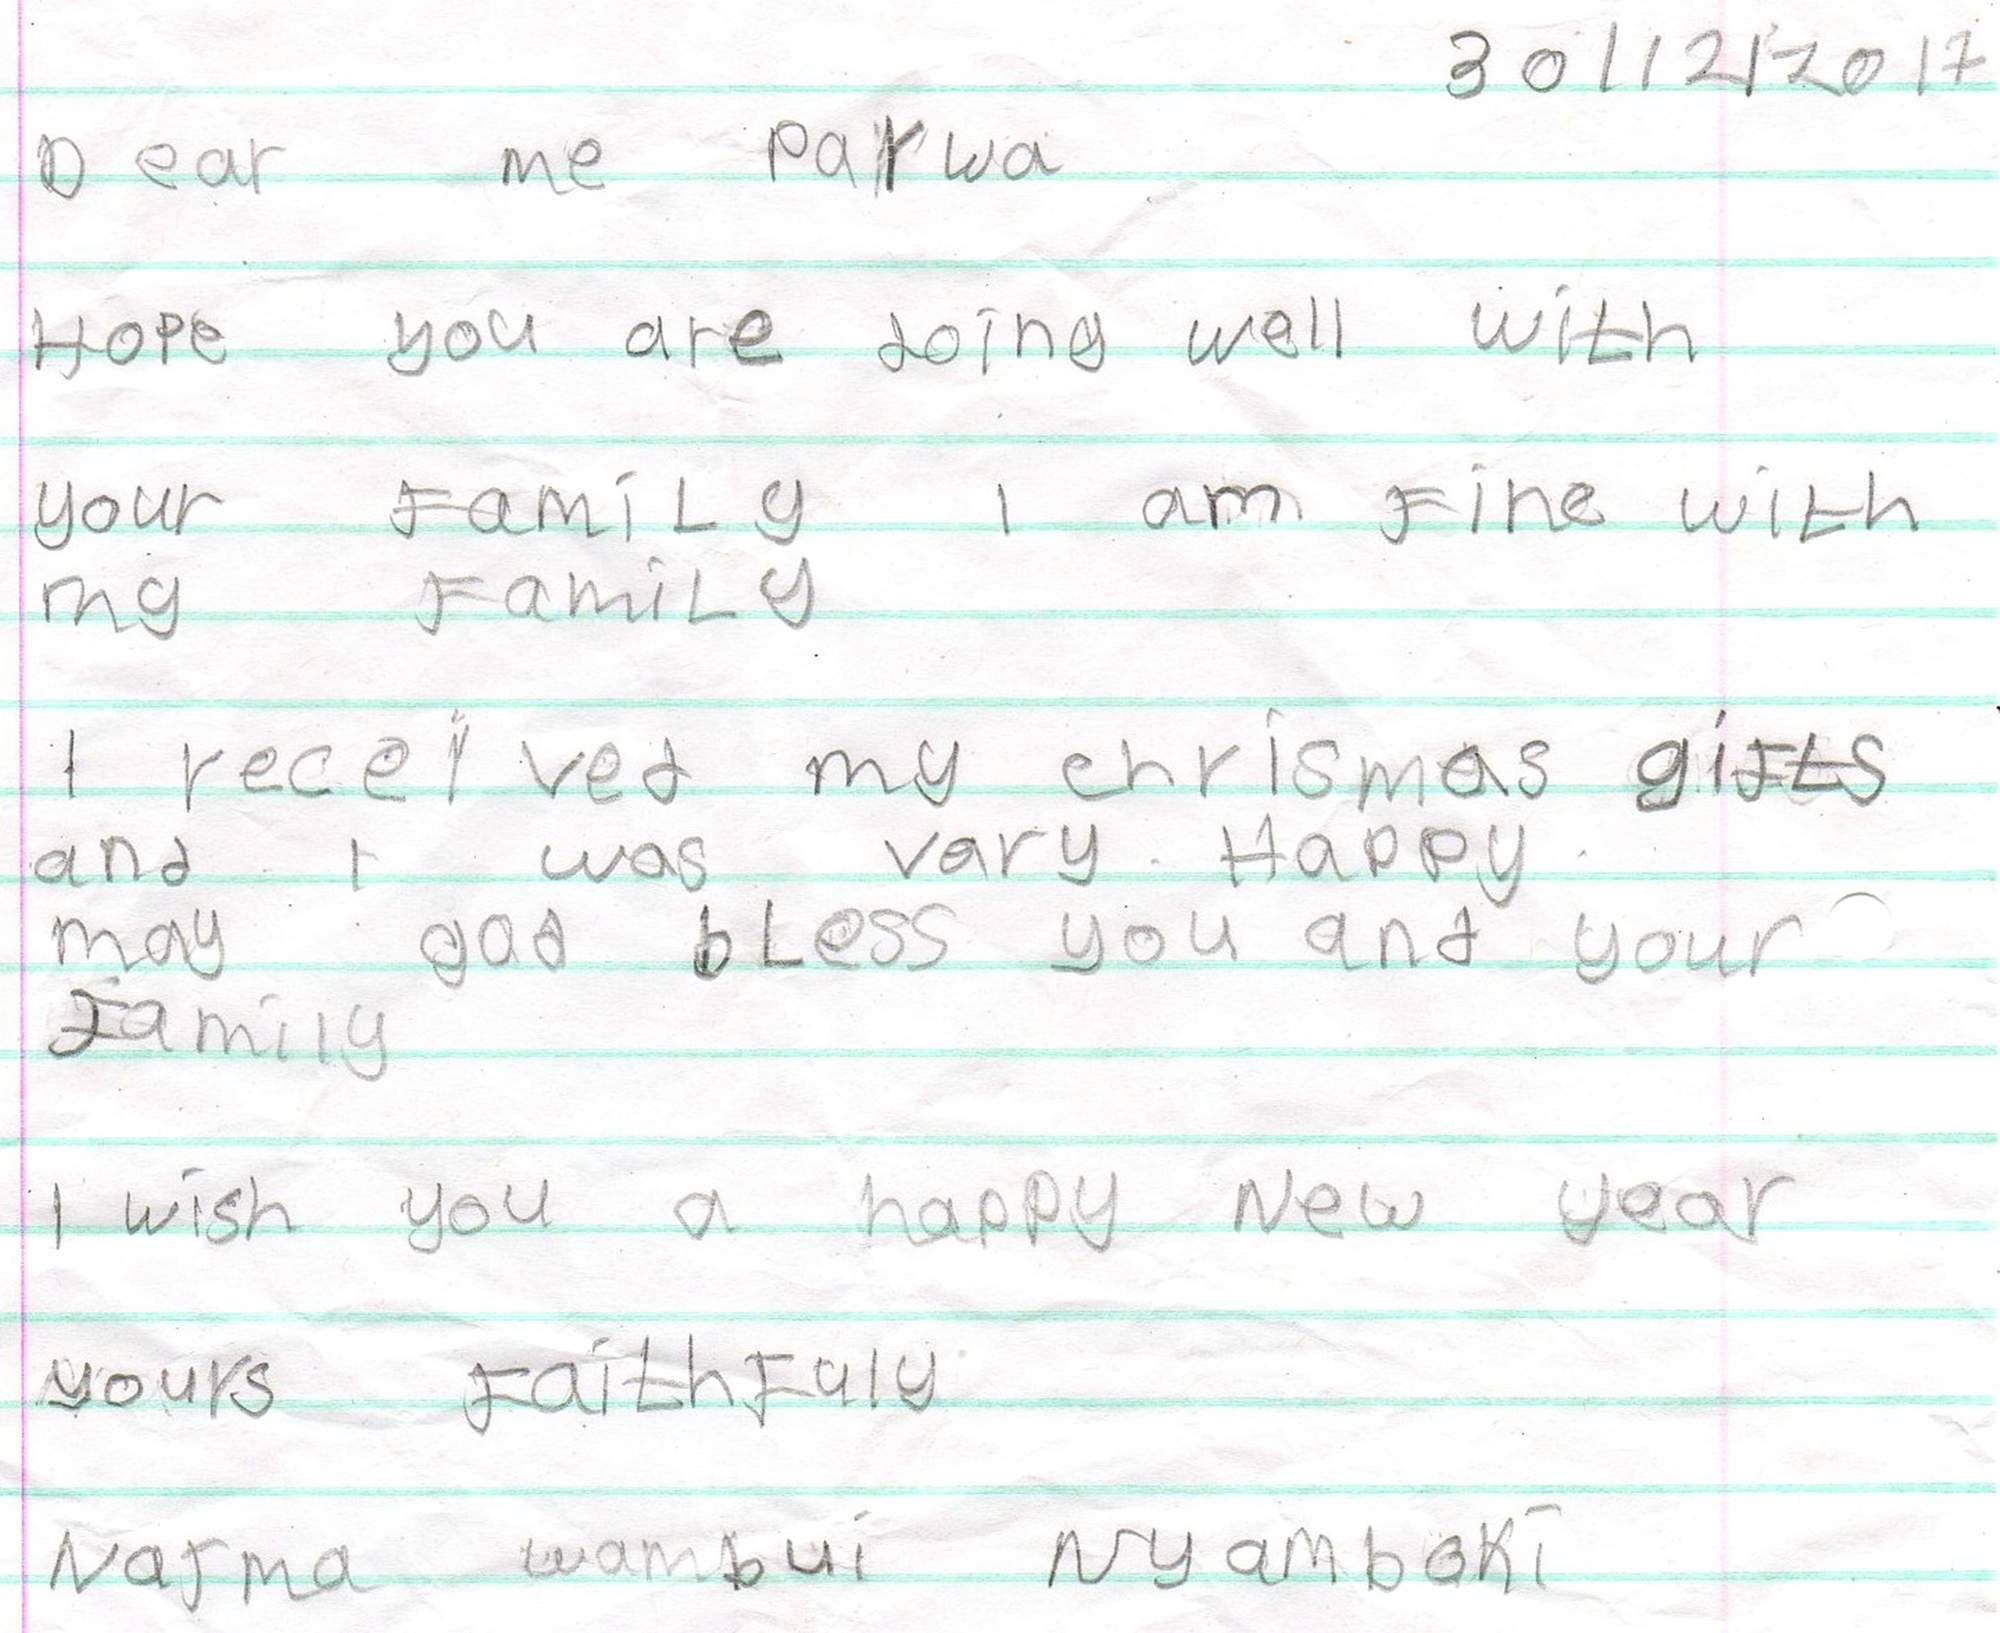 30/12/2017
Dear me Parwa
Hope you are doing well with
your FamiLy I am Fine with
my FamiLy
I received my chrismas giFts
and I was vary Happy
may god bLess you and your
Family
I wish you a happy New year
yours FaithFuly
Najma wambui Nyamboki